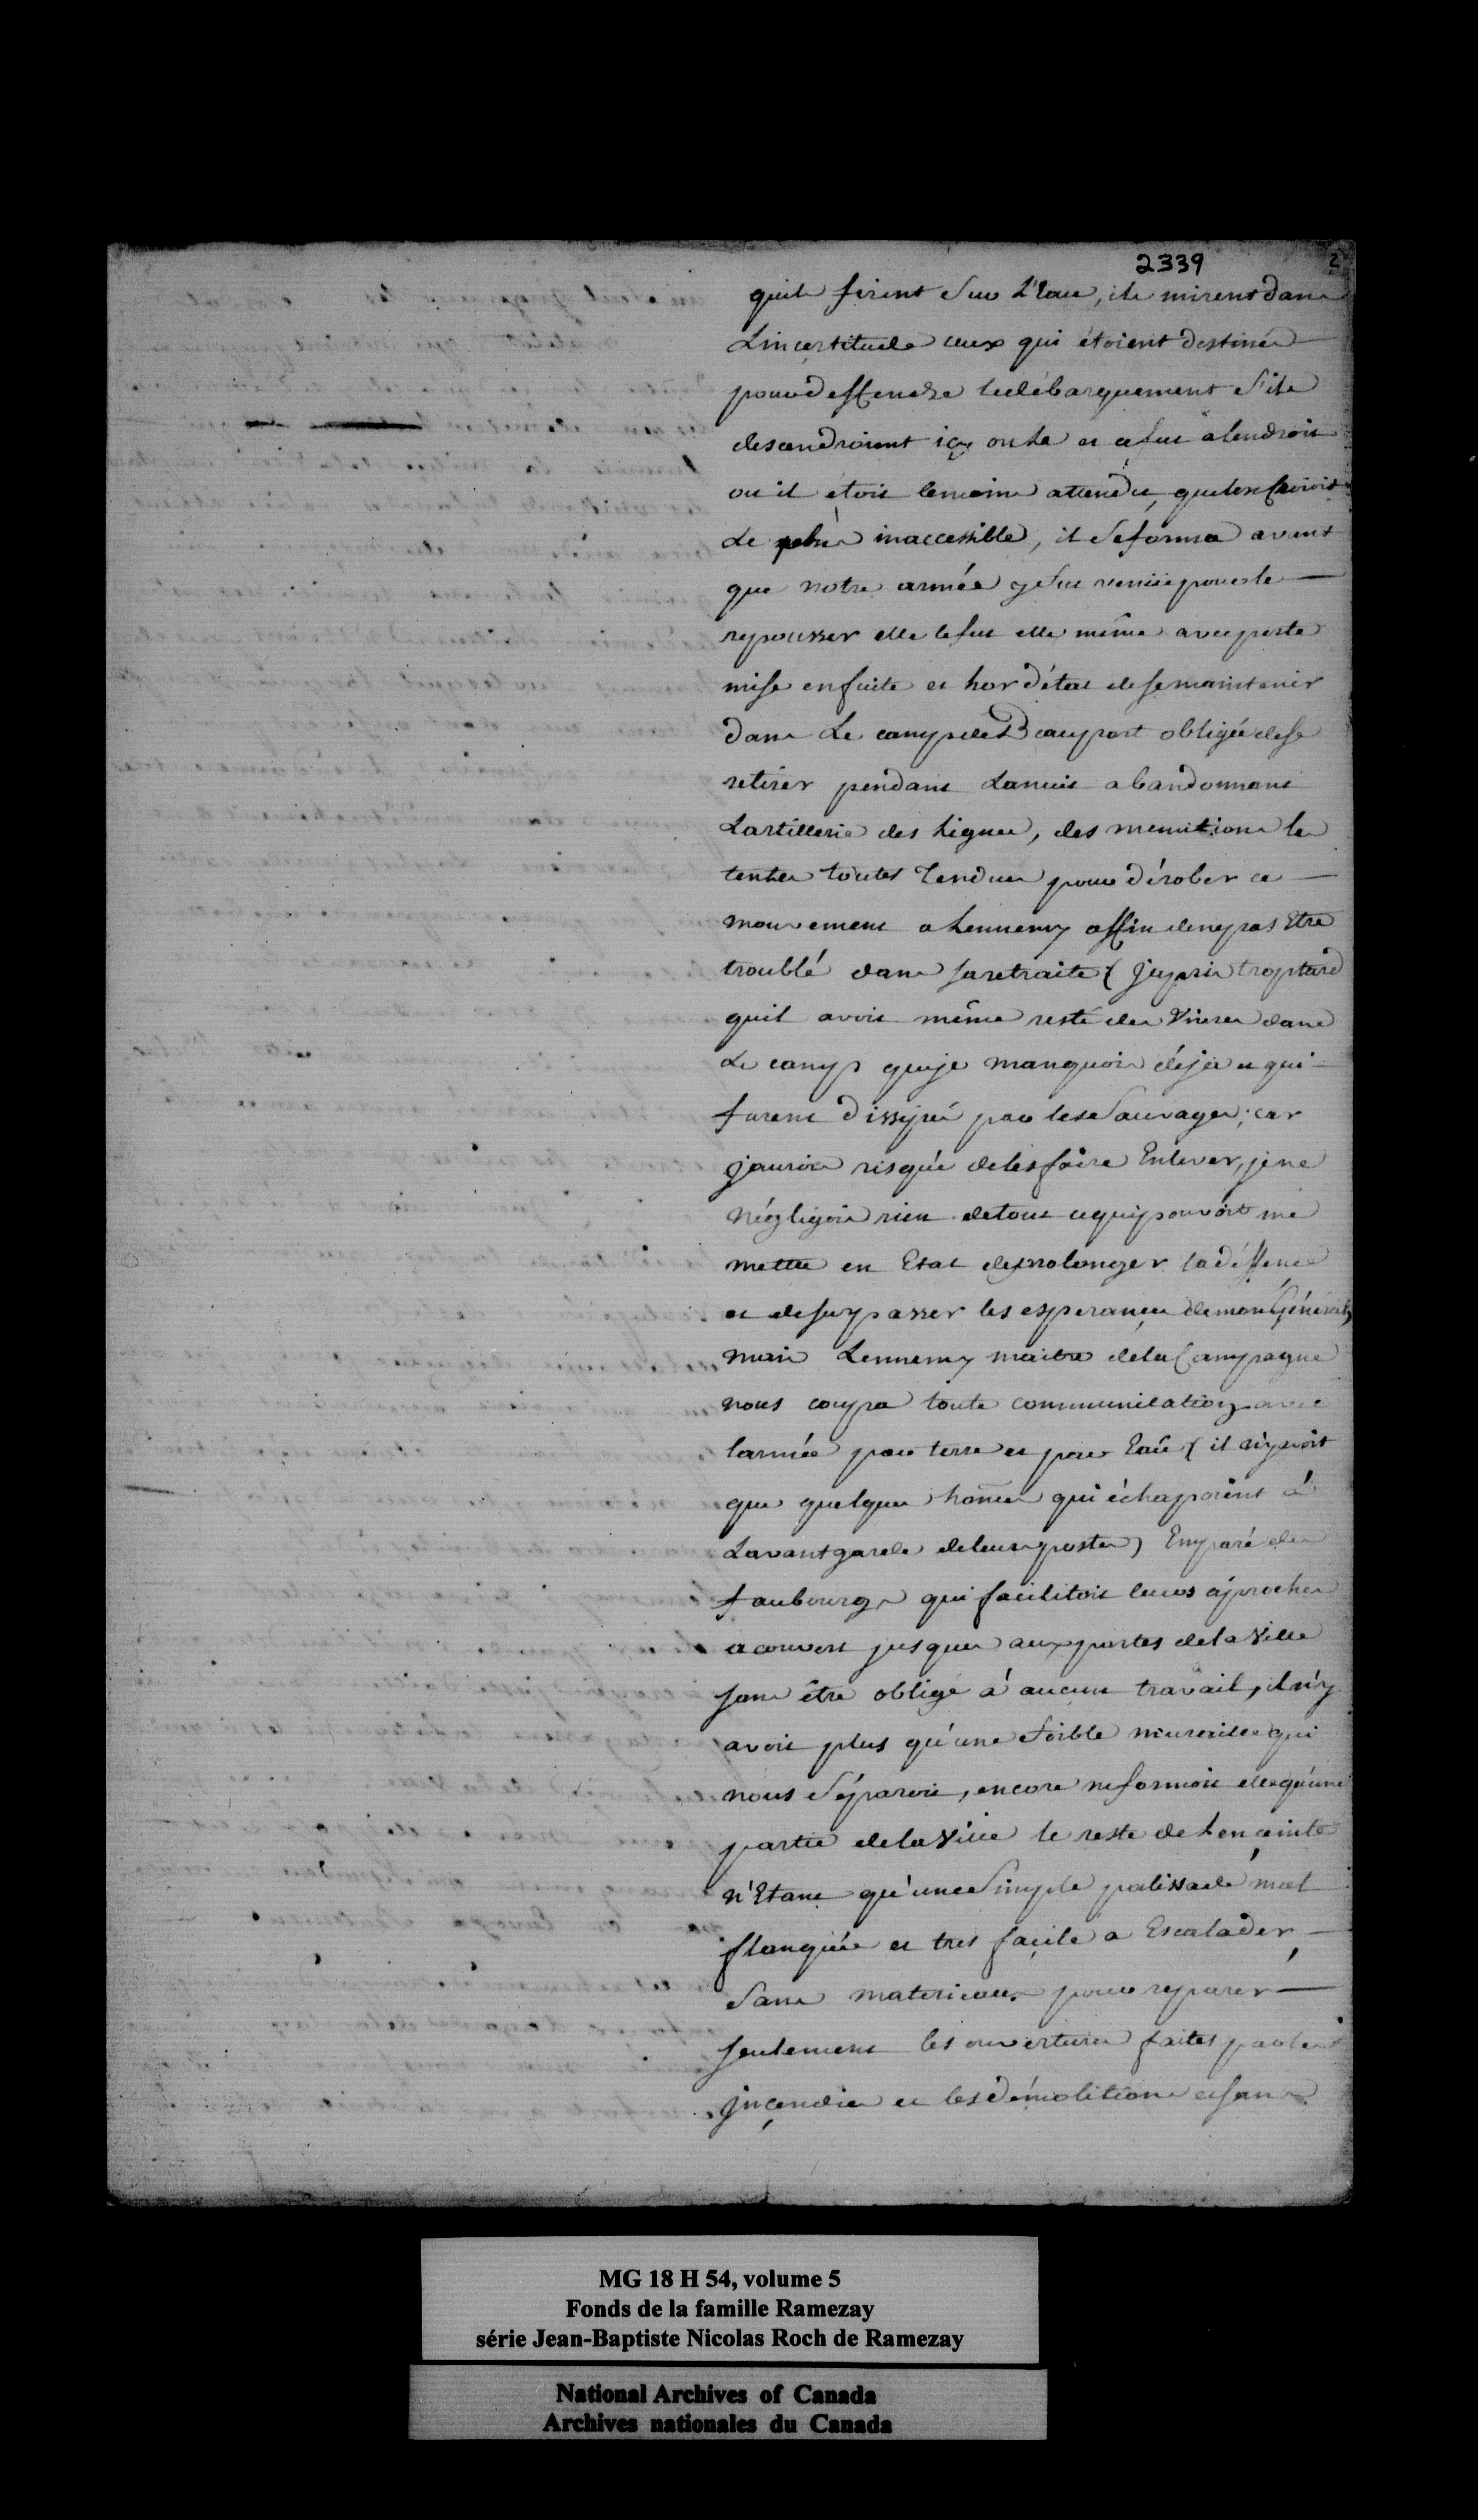 2339
2
quils firent sur L'Eau, ils mirent dans
Lincertitude ceux qui étoient destinés
pour deffendre le débarquement s'ils
descendroient icy ou La et ce fut alendroit
ou il étoit le moins attendu, que lon croioit
Le plus inaccessible, il se forma avant
que notre armée y fut venüe pour le
repousser elle le fut elle même avec perte
mise en fuite et hor d'état de se maintenir
dans Le camp de Beauport obligée de se
retirer pendant La nuit abandonnant
Lartillerie des Lignes, des munitions les
tentes toutes Tendues pour dérober ce
mouvement a Lennemy affin de ne pas Etre
troublé dans sa retraite (j'appris trop tard
quil avoit même resté des Vivres dans
Le camp que je manquois déja et qui
furent dissipés par les Sauvages; car
jaurois risqué de les faire Enlever, je ne
négligois rien de tout ce qui pouvoit me
mettre en Etat de prolonger la déffence
et de surpasser les esperances de mon Général)
mais Lennemy maitre de la Campagne
nous coupa toute communication avec
larmée par terre et par Eau (il n'y avoit
que quelques hom̃es qui échapoient à
Lavantgarde de leurs postes) Emparé des
faubourgs qui facilitoit leurs aproches
a couvert jusques aux portes de la Ville
sans être obligé à aucun travail, il n'y
avoit plus qu'une foible muraille qui
nous séparoit, encore ne formoit elle qu'une
partie de la Ville le reste de Lenceinte
n'Etant qu'une Simple palissade mal
flanquée et tres façile a Escalader
Sans materieaux pour reparer
seulement les ouvertures faites par les
jnçendies et les démolitions et sans
MG 18 H 54, volume 5
Fonds de la famille Ramezay
série Jean-Baptiste Nicolas Roch de Ramezay
National Archives of Canada
Archives nationales du Canada